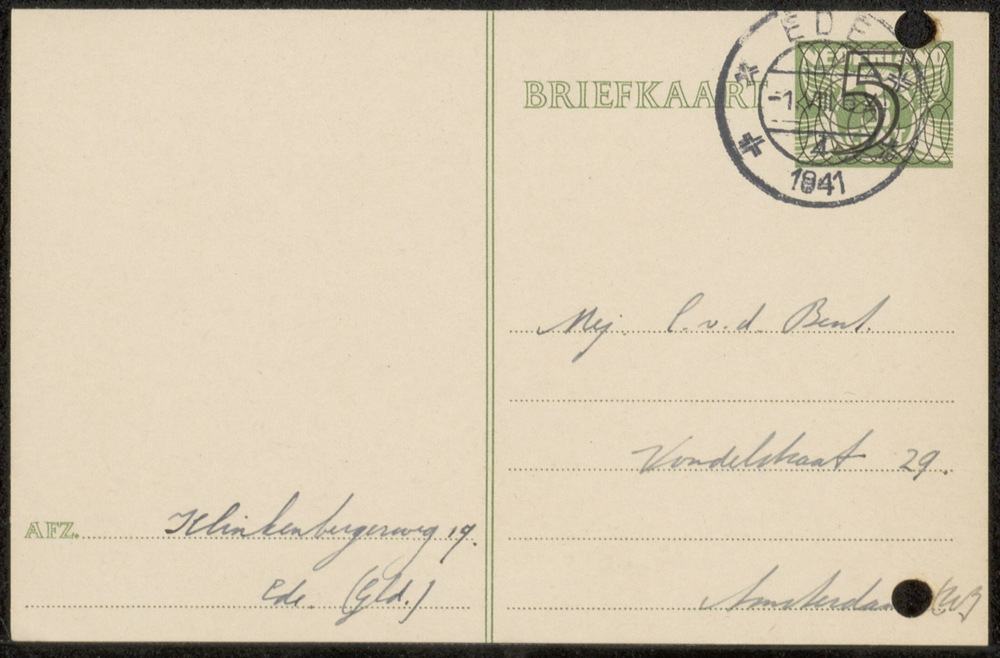 EDE
BRIEFKAART
5
-1 VIII
4
1941
Mej. C. v. d. Bent.
Vondelstraat 29.
AFZ. Klinkenbergerweg 19.
Ede (Gld.)
Amsterdam (W)